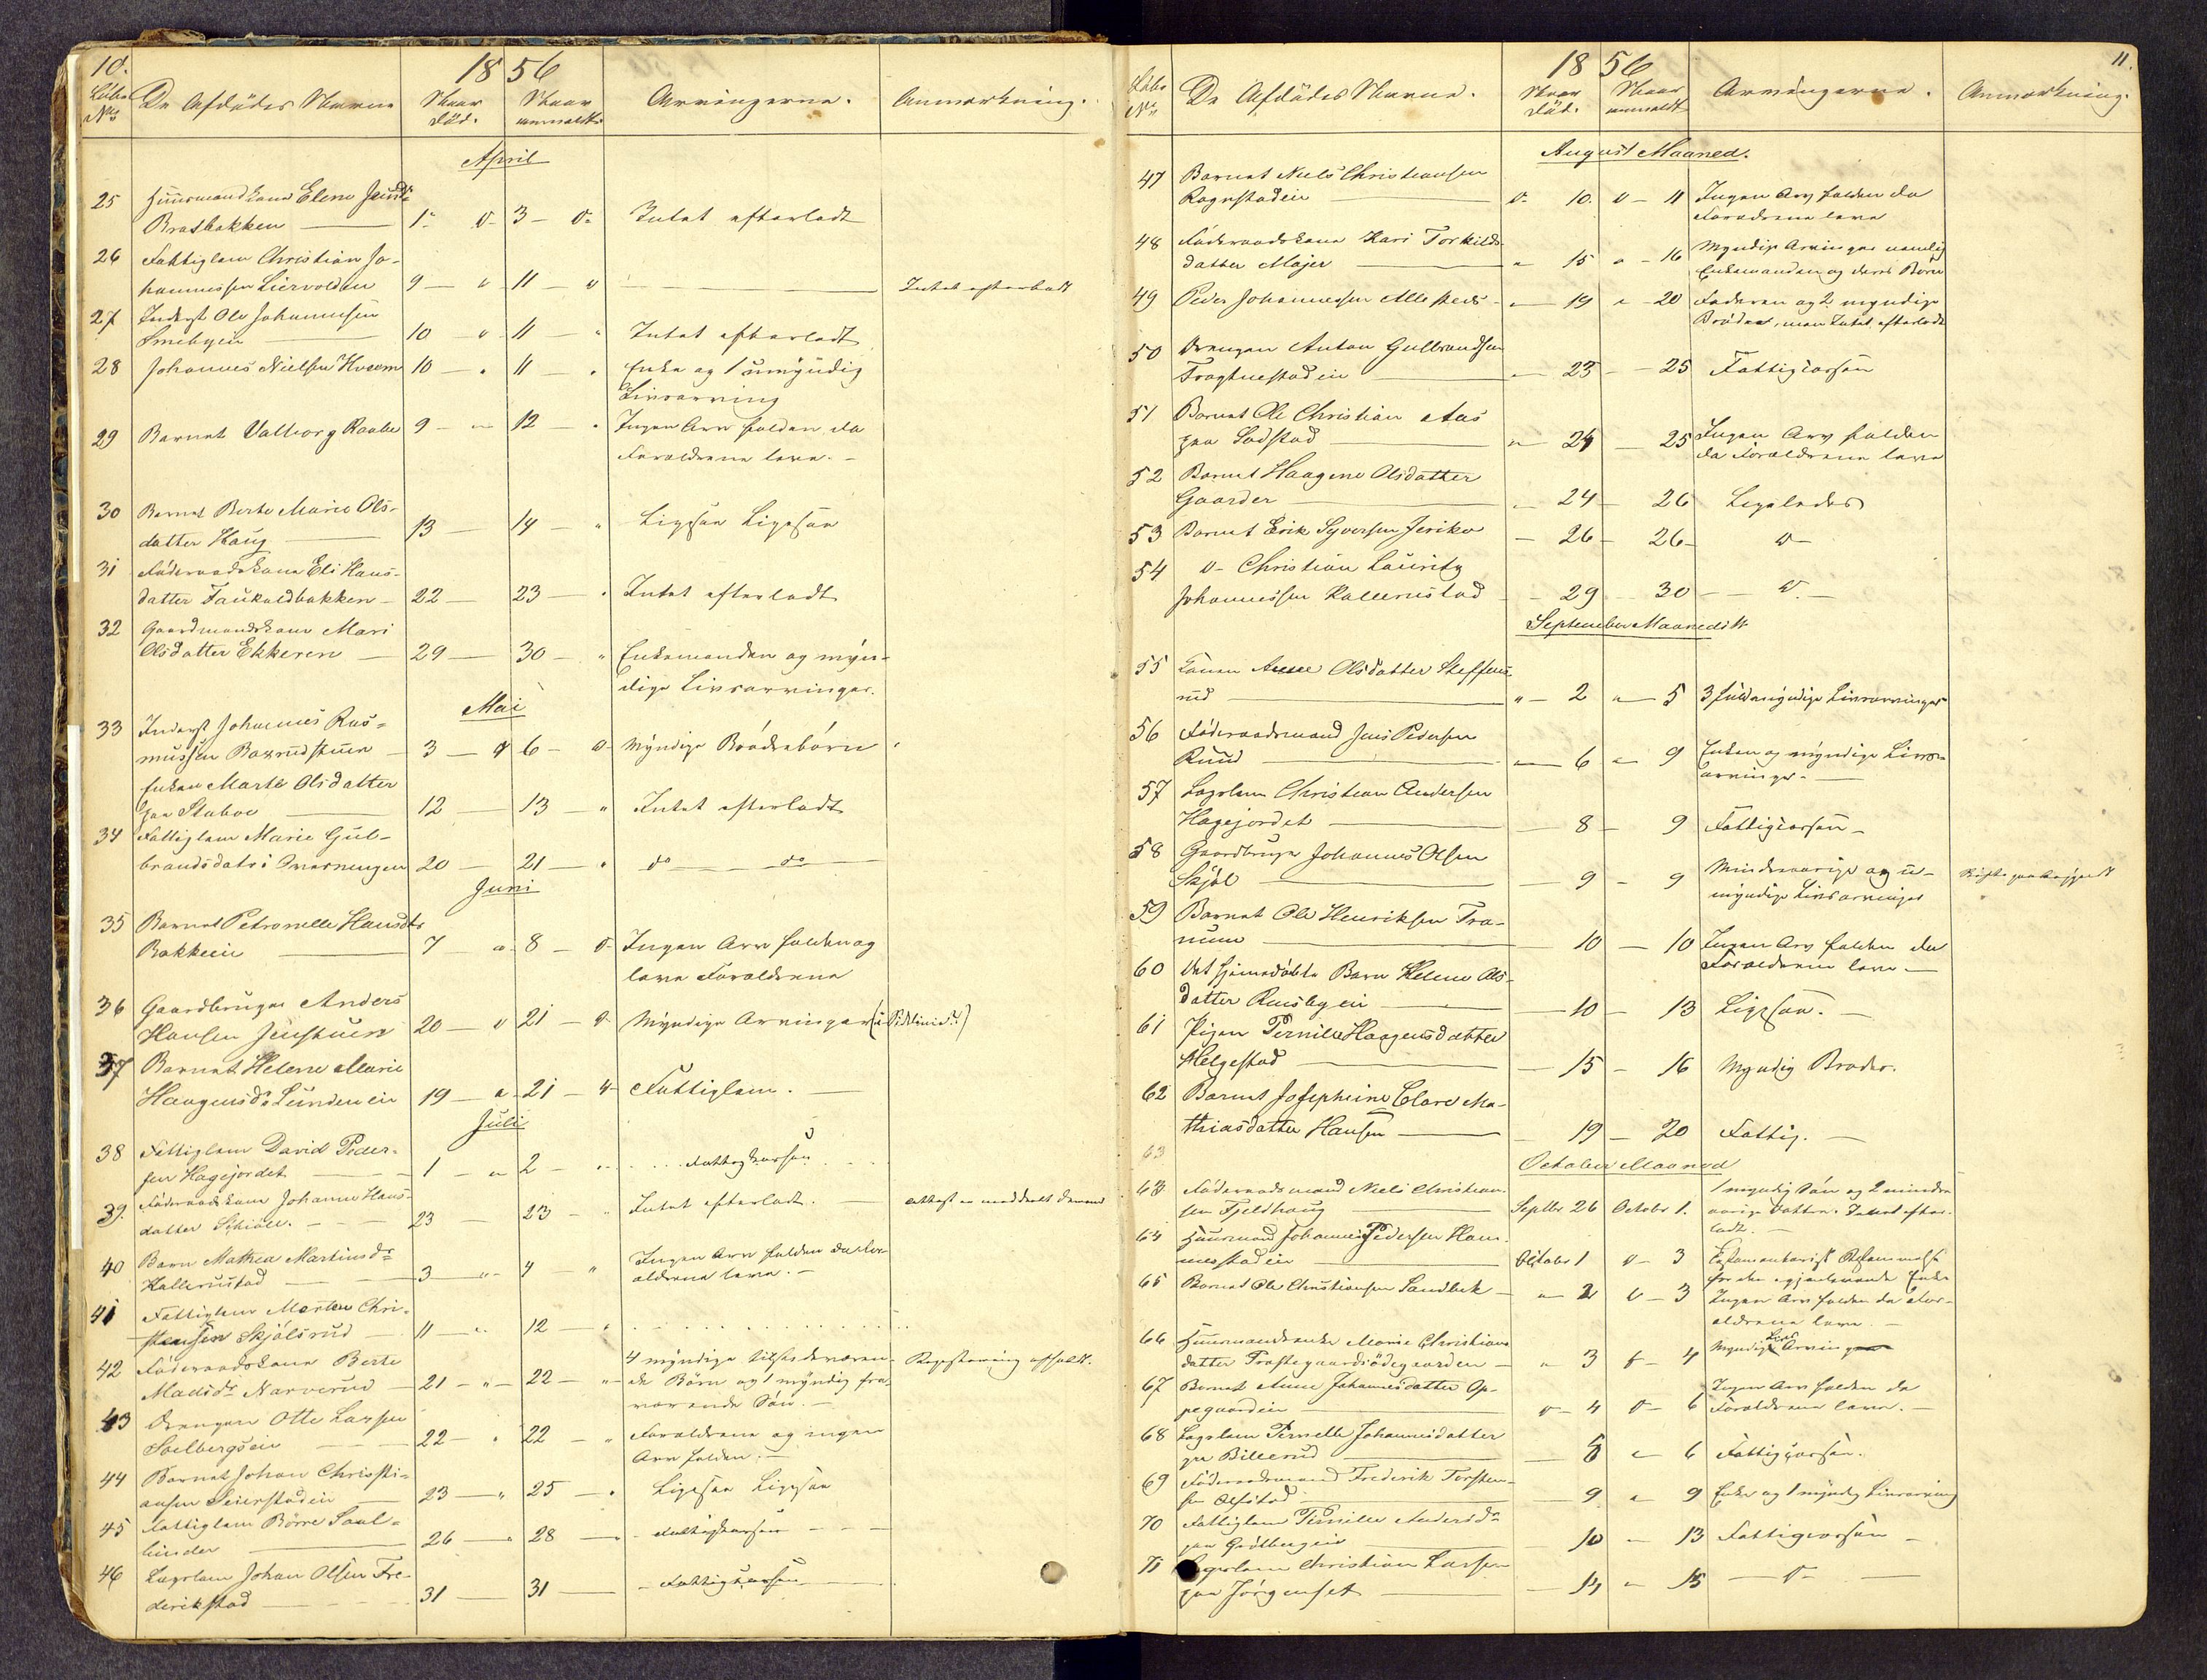 10.
1856
Löbe De Afdödes Navne Naar Naar Arvingerne. Anmærkning.
No Död. anmeldt
April
25 Huusmandskone Elene Jensdr
Bratbakken 1 d 3 d Intet efterladt
26 Fattiglem Christian Jo-
hannessen Liervolden 9 " 11 " Intet efterladt
27 Inderst Ole Johannesen
Smebyeie 10 " 11 " Intet efterladt
28 Johannes Nielsen Hveem 10 " 11 " Enke og 1 umyndig
Livsarving
29 Barnet Valborg Raabe 9 " 12 " Ingen Arv falden da
Forældrene leve.
30 Barnet Berte Marie Ols-
datter Haug 13 14 " Ligesaa Ligesaa
31 Föderaadskone Eli Hans-
datter Faukaldbakken 22 23 " Intet efterladt
32 Gaardmandskone Mari
Olsdatter Ekkeren 29 30 " Enkemanden og myn-
dige Livsarvinger.
Mai
33 Inderst Johannes Ras-
mussen Baxrudstuen 3 d 6 d Myndige Brödrebörn
Enken Marte Olsdatter
paa Staboe 12 13 " Intet efterladt
34 Fattiglem Marie Gul-
brandsdatr i 20 21 " do do
Juni
35 Barnet Petronelle Hansdtr
Bakkeeie 7 " 8 d Ingen Arv falden og
leve Forældrene
36 Gaardbruger Anders
Hansen Jenstuen 20 " 21 d Myndige Arvinger
37 Barnet Helene Marie
Haagensdr Lundeneie 19 " 21 " Fattiglem.
Juli
38 Fattiglem David Peder-
sen Hagejordet 1 " 2 " Fattigkassen
39. Föderaadskone Johanne Hans-
datter Schiöll. 23 23 " Intet efterladt. Attest er meddeelt
40 Barn Mathea Martinsdr
Kallerustad 3 " 4 " Ingen Arv falden da For-
ældrene leve.
41 Fattiglem Morten Chri-
stensen Skjölsrud 11 " 12 "
42 Föderaadskone Berte
Madsdr Narverud 21 " 22 " 4 myndige tilstedeværen-
de Börn og 1 myndig fra-
værende Sön. Registrering afholdt.
43 Drengen Otte Larsen
Solbergseie 22 " 22 " Forældrene og ingen
Arv falden.
44 Barnet Johan Christi-
ansen Seierstadeie 23 " 25 " Ligesaa Ligesaa
45 Fattiglem Börre Saul-
linder 26 " 28 " Fattigkassen
46 Lægslem Johan Olsen Fre-
derikstad 31 31 Fattigkassen
11.
1856
Löbe De Afdödes Navne. Naar Naar Arvingerne. Anmærkning.
No Död. anmeldt
August Maaned.
47 Barnet Niels Christiansen
Rognstadeie d 10. d 11 Ingen Arv falden da
Forældrene leve
48 Föderaadskone Kari Torkilds-
datter Majer " 15 " 16 Myndige Arvinger nemlig
Enkemanden og deres Börn
49 Peder Johannesen Alle " 19 " 20 Faderen og 2 myndige
Brödre, men Intet efterladt
50 Drengen Anton Gulbrandsen
Fragtnestadeie " 23 25 Fattigkassen
51 Barnet Ole Christian Aas
paa Sodstad " 24 25 Ingen Arv falden
da Forældrene leve
52 Barnet Haagene Olsdatter
Gaarder " 24 26 Ligeledes
53 Barnet Erik Syversen Jeriko 26 26 d
54 d Christian Lauritz
Johannessen Kallerustad 29 30 d
September Maaned
55 Konen Anne Olsdatter Steffens-
rud " 2 " 5 3 fuldmyndige Livsarvinger
56 Föderaadsmand Jens Pedersen
Ruud " 6 " 9 Enken og myndige Livs-
arvinger.
57 Lægslem Christian Andersen
Hagejordet 8 9 Fattigkassen
58 Gaardbruger Johannes Olsen
Skjöl 9 9 Mindreaarige og u-
myndige Livsarvinger Skifte paabegyndt
59 Barnet Ole Henriksen Tra-
num 10 10 Ingen Arv falden da
Forældrene leve
60 Det hjemmedöbte Barn Helene Ols-
datter Rusbyeie 10 13 Ligesaa.
61 Pigen Pernille Haagensdatter
Helgestad 15 16 Myndig Broder.
62 Barnet Josephine Clare Ma-
thiasdatter Hansen 19 20 Fattig.
63
October Maaned
63 Föderaadsmand Niels Christian-
sen Fjeldhaug Septbr 26 Octobr 1. 1 myndig Sön og 2 mindre-
aarige Döttre. Intet efter-
ladt.
64 Huusmand Johannes Pedersen Ham-
mestadeie Octobr 1 d 3 Testamentarisk Bestemmelse
for den gjenlevende Enke
65 Barnet Ole Christiansen Sandbek " 2 d 3 Ingen Arv falden da For-
ældrene leve.
66 Huusmandsenke Marie Christians-
datter Prostegaardsödegaarden " 3 d 4 Myndig Livs Arving
67 Barnet Anne Johannesdatter Op-
pegaardeie d 4 d 6 Ingen Arv falden da
Forældrene leve.
68 Lægslem Pernelle Johannesdatter
paa Billerud 5 " 6 Fattigkassen.
69 Föderaadsmand Frederik Torsten-
sen Alfstad 9 " 9 Enke og 1 myndig Livsarving
70 Fattiglem Pernille Andersdr
paa 10 13 Fattigkassen
71 Lægslem Christian Larsen
paa Jörgenset 14 " 15 d